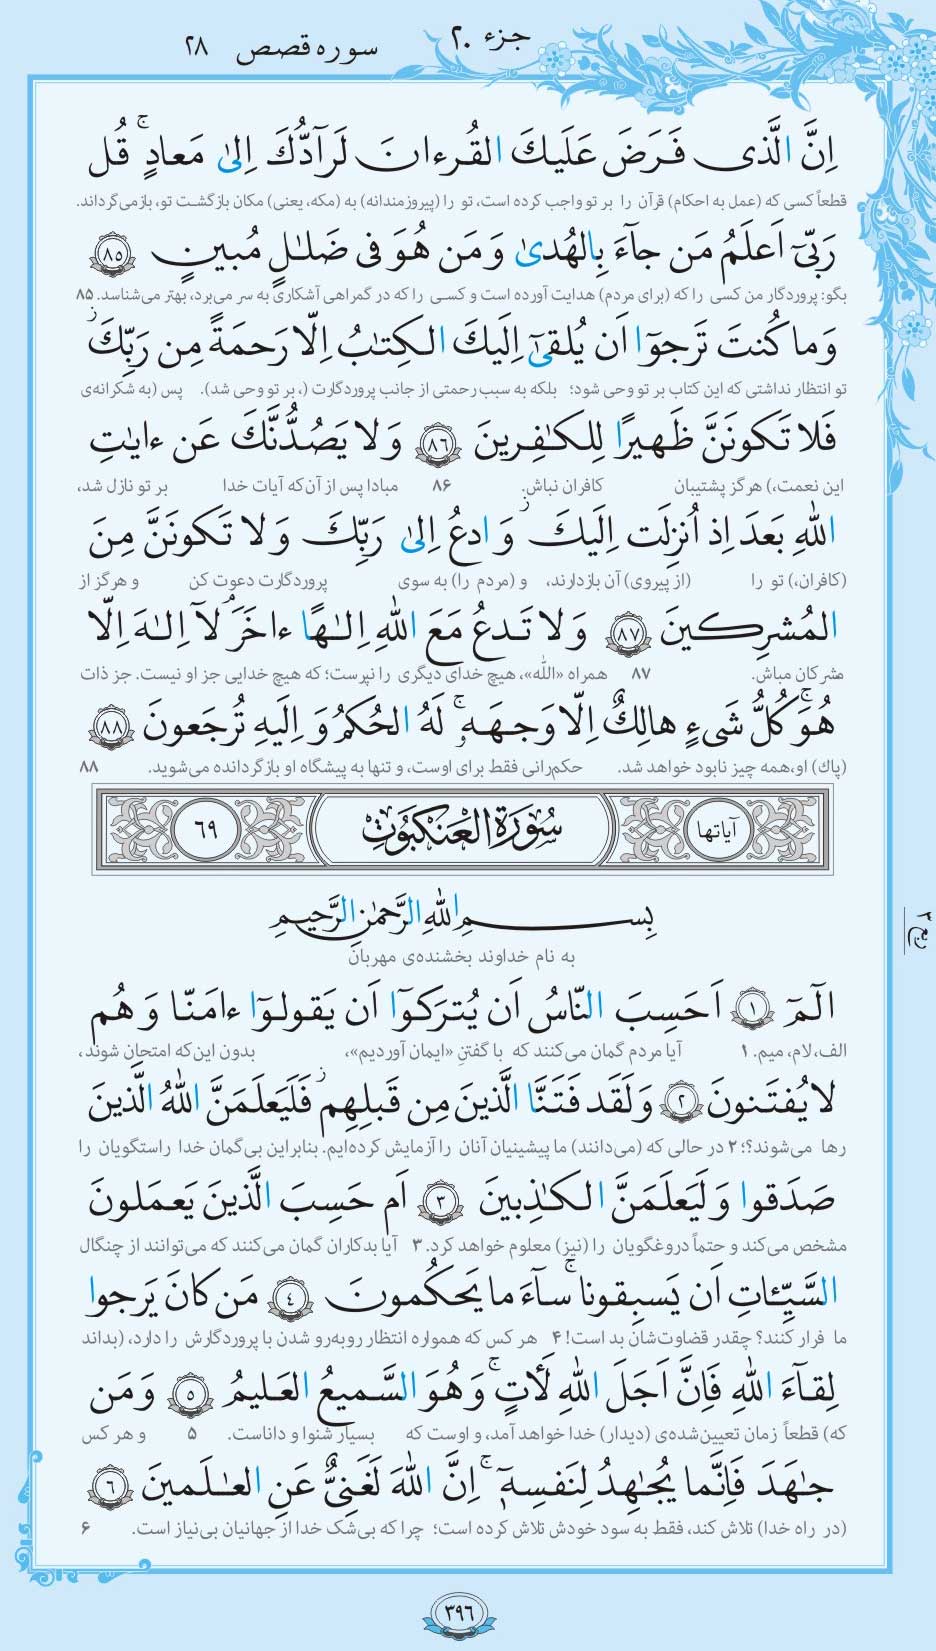 جزء ۲۰
سوره قصص ۲۸
اِنَّ الَّذى فَرَضَ عَلَيكَ القُرءانَ لَرَآدُّكَ اِلىٰ مَعادٍ ۚ قُل
قطعاً کسی که (عمل به احکام) قرآن را بر تو واجب کرده است، تو را (پیروزمندانه) به (مکه، یعنی) مکان بازگشت تو، بازمی‌گرداند.
رَبّىٓ اَعلَمُ مَن جآءَ بِالهُدىٰ وَ مَن هُوَ فى ضَلـٰلٍ مُبينٍ ﴿٨٥﴾
بگو: پروردگار من کسی را که (برای مردم) هدایت آورده است و کسی را که در گمراهی آشکاری به سر می‌برد، بهتر می‌شناسد. ۸۵
وَ ما كُنتَ تَرجوٓا اَن يُلقىٰٓ اِلَيكَ الـكِتـٰبُ اِلّا رَحمَةً مِن رَبِّكَ ۖ
تو انتظار نداشتی که این کتاب بر تو وحی شود؛ بلکه به سبب رحمتی از جانب پروردگارت (، بر تو وحی شد). پس (به شکرانه‌ی
فَلا تَكونَنَّ ظَهيرًا لِلكـٰفِرينَ ﴿٨٦﴾ وَ لا يَصُدُّنَّكَ عَن ءايـٰتِ
این نعمت،) هرگز پشتیبان کافران نباش. ۸۶ مبادا پس از آن‌که آیات خدا بر تو نازل شد،
اللّٰهِ بَعدَ اِذ اُنزِلَت اِلَيكَ ۖ وَ ادعُ اِلىٰ رَبِّكَ وَ لا تَكونَنَّ مِنَ
(کافران،) تو را (از پیروی) آن بازدارند، و (مردم را) به سوی پروردگارت دعوت کن و هرگز از
المُشرِكـينَ ﴿٨٧﴾ وَ لا تَـدعُ مَعَ اللّٰهِ اِلـٰـهًا ءاخَرَ ۘ لآ اِلـٰـهَ اِلّا
مشرکان مباش. ۸۷ همراه «اللّٰه»، هیچ خدای دیگری را نپرست؛ که هیچ خدایی جز او نیست. جز ذات
هُوَ ۚ كُلُّ شَىءٍ هالِكٌ اِلّا وَجهَـهٖ ۚ لَهُ الحُكمُ وَ اِلَيهِ تُرجَعونَ ﴿٨٨﴾
(پاک) او، همه چیز نابود خواهد شد. حکم‌رانی فقط برای اوست، و تنها به پیشگاه او بازگردانده می‌شوید. ۸۸
آیاتها سُورَةُ العَنكَبُوتِ ۶۹
بِسـمِ اللّٰهِ الرَّحمـٰنِ الرَّحيـمِ
به نام خداوند بخشنده‌ی مهربان
ربع ۳
الٓمٓ ﴿١﴾ اَحَسِبَ النّاسُ اَن يُترَكوٓا اَن يَقولـوٓا ءامَنّـا وَ هُم
الف، لام، میم. ۱ آیا مردم گمان می‌کنند که با گفتنِ «ایمان آوردیم»، بدون این‌که امتحان شوند،
لا يُفتَـنونَ ﴿٢﴾ وَ لَقَد فَتَنَّا الَّذينَ مِن قَبلِهِم ۖ فَلَيَعلَمَنَّ اللّٰهُ الَّذينَ
رها می‌شوند؟؛ ۲ در حالی که (می‌دانند) ما پیشینیان آنان را آزمایش کرده‌ایم. بنابراین بی‌گمان خدا راستگویان را
صَدَقوا وَ لَيَعلَمَنَّ الـكـٰذِبينَ ﴿٣﴾ اَم حَسِبَ الَّذينَ يَعـمَلونَ
مشخص می‌کند و حتماً دروغگویان را (نیز) معلوم خواهد کرد. ۳ آیا بدکاران گمان می‌کنند که می‌توانند از چنگال
السَّيِّـٔاتِ اَن يَسبِقونا ۚ سـآءَ ما يَحكُمونَ ﴿٤﴾ مَن كانَ يَرجوا
ما فرار کنند؟ چقدر قضاوت‌شان بد است! ۴ هر کس که همواره انتظار روبه‌رو شدن با پروردگارش را دارد، (بداند
لِقـآءَ اللّٰهِ فَاِنَّ اَجَلَ اللّٰهِ لَأتٍ ۚ وَ هُوَ السَّميعُ العَليمُ ﴿٥﴾ وَ مَن
که) قطعاً زمان تعیین‌شده‌ی (دیدار) خدا خواهد آمد، و اوست که بسیار شنوا و داناست. ۵ و هر کس
جـٰهَدَ فَاِنَّما يُجـٰهِدُ لِنَفسِهٖٓ ۚ اِنَّ اللّٰهَ لَغَنِىٌّ عَنِ العـٰلَمينَ ﴿٦﴾
(در راه خدا) تلاش کند، فقط به سود خودش تلاش کرده است؛ چرا که بی‌شک خدا از جهانیان بی‌نیاز است. ۶
۳۹۶